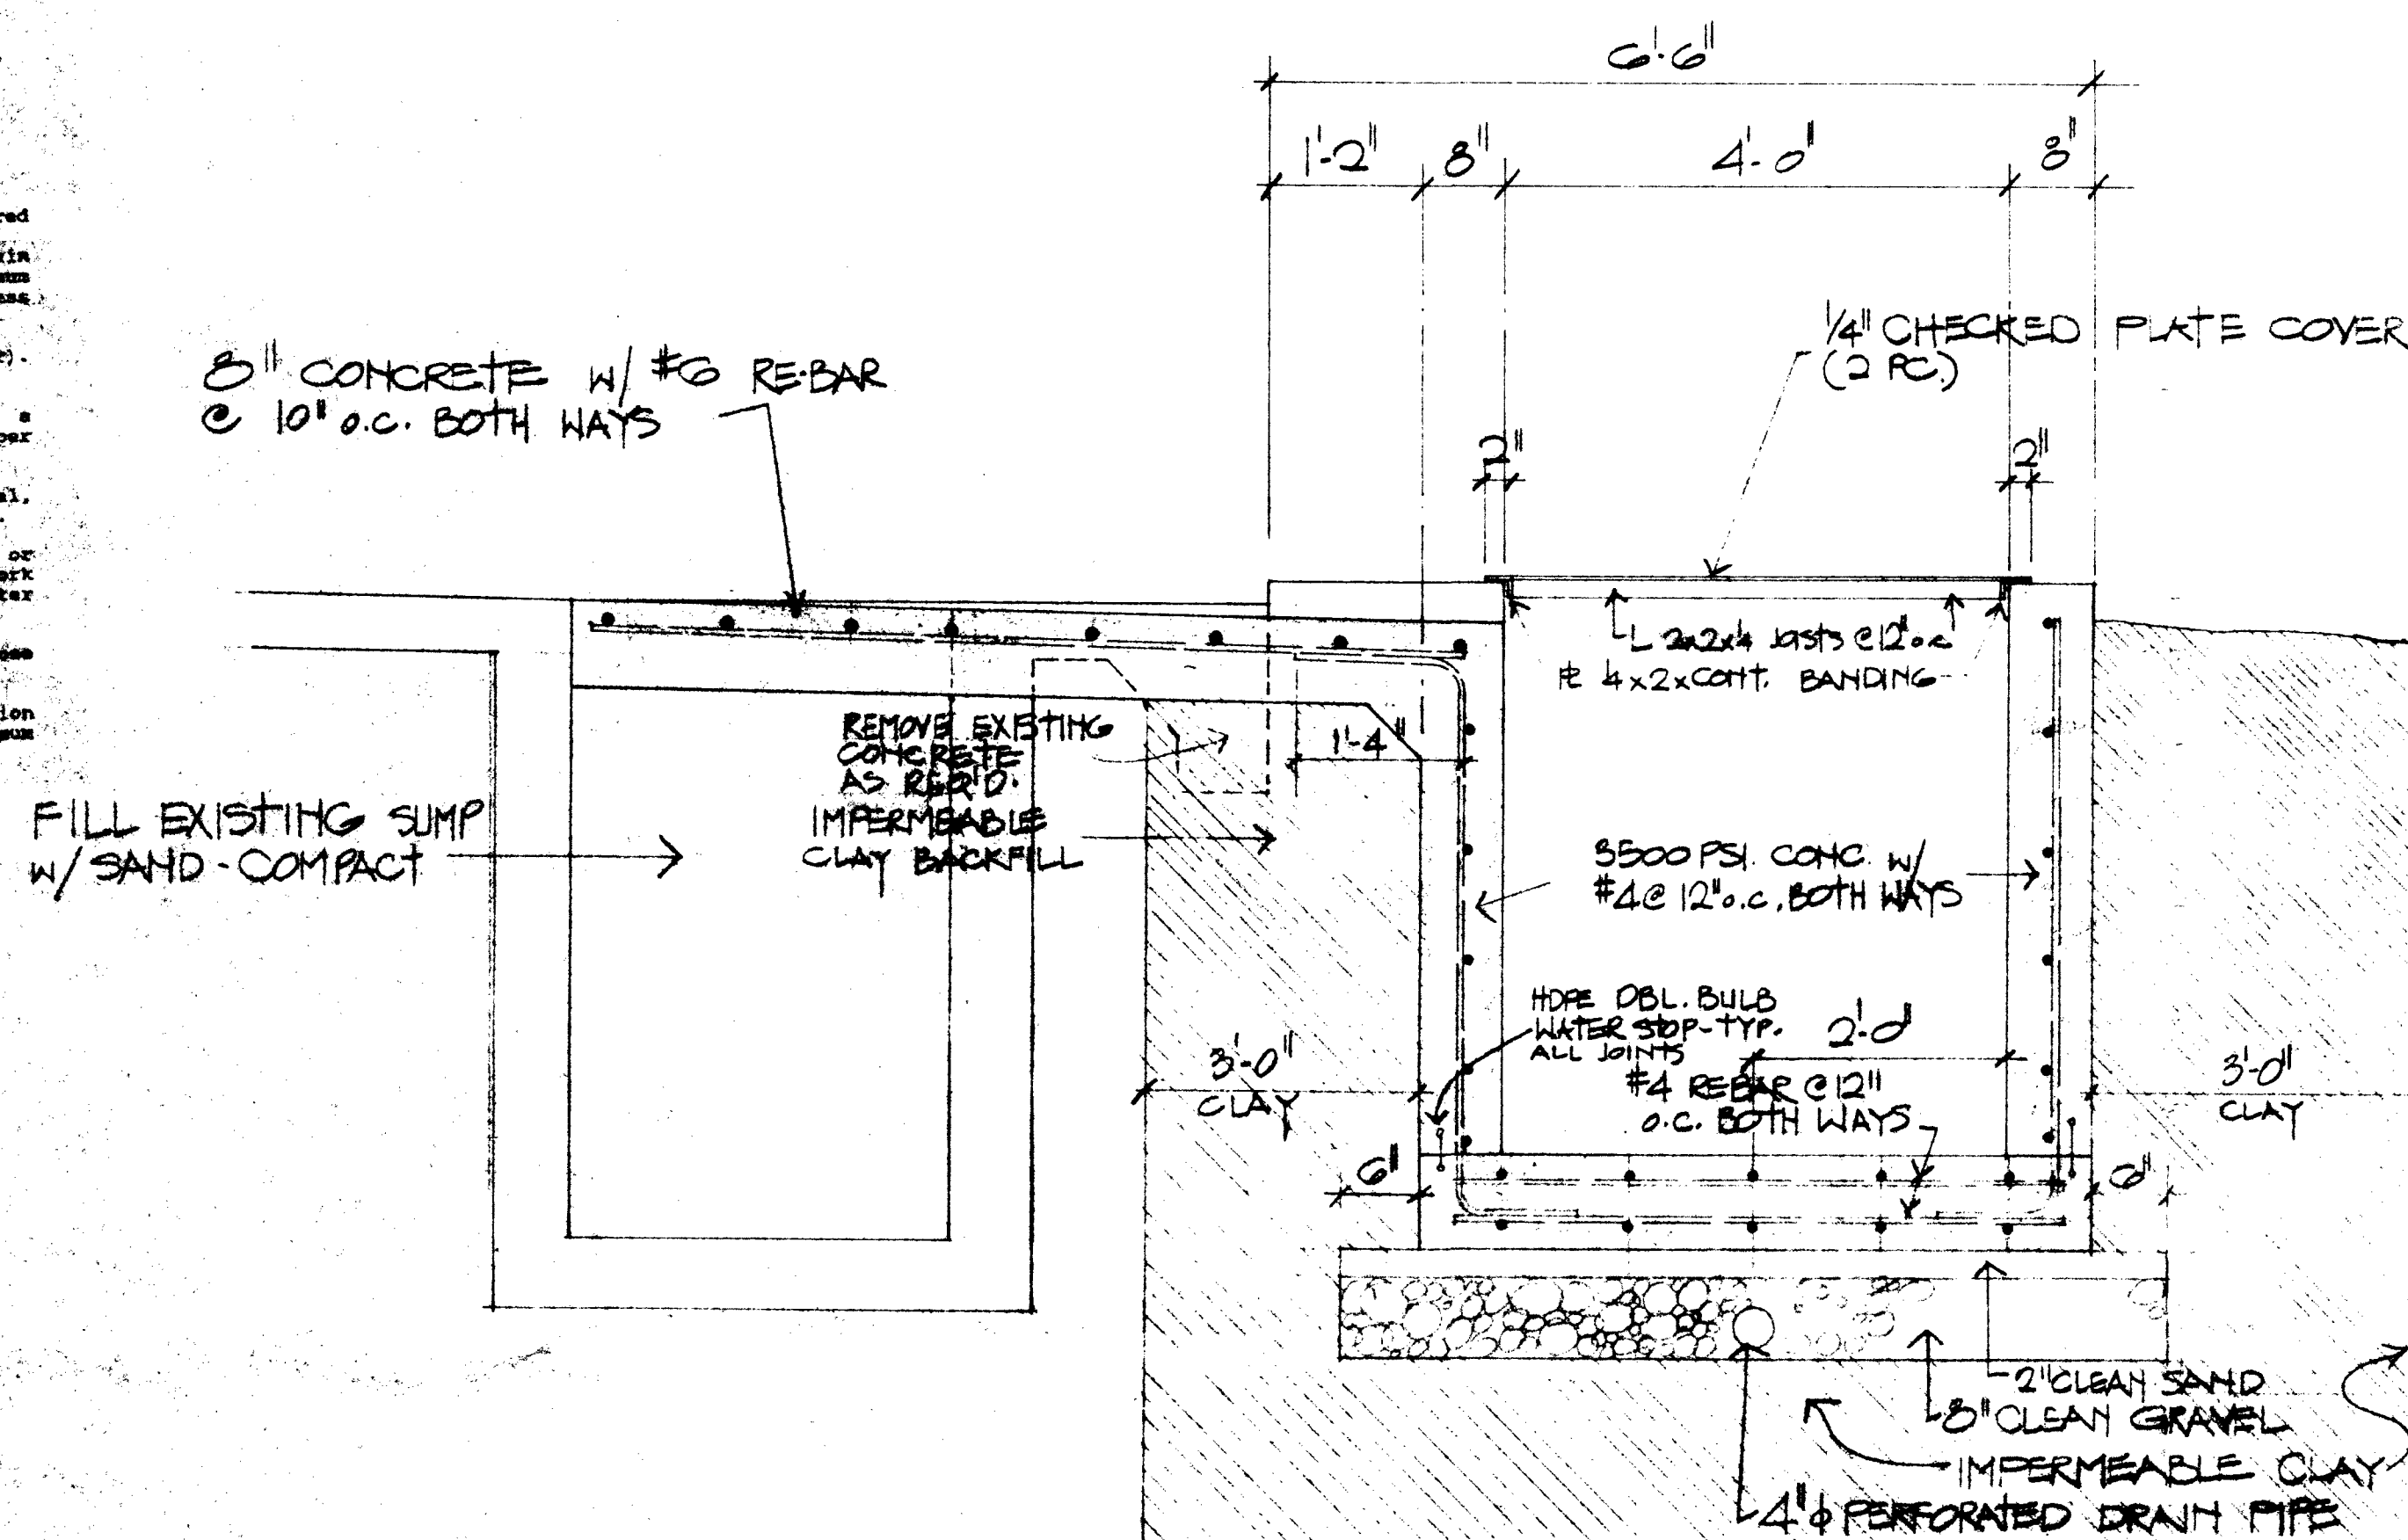 6'-6"
1'-2" 8" 4'-0" 8"
1/4" CHECKED PLATE COVER
(2 PC.)
8" CONCRETE W/ #6 RE-BAR
@ 10" O.C. BOTH WAYS
2" 2"
L 2x2x1/4 JOSTS @ 12" o.c
PL 1/4 x 2 x CONT. BANDING
REMOVE EXISTING
CONCRETE
AS REQ'D.
1'-4"
IMPERMEABLE
CLAY BACKFILL
FILL EXISTING SUMP
W/ SAND - COMPACT
3500 PSI. CONC. W/
#4 @ 12" O.C. BOTH WAYS
HDPE DBL. BULB
WATER STOP - TYP.
ALL JOINTS
2'-0"
#4 REBAR @ 12"
O.C. BOTH WAYS
3'-0"
CLAY
3'-0"
CLAY
6" 6"
2" CLEAN SAND
8" CLEAN GRAVEL
IMPERMEABLE CLAY
4"ϕ PERFORATED DRAIN PIPE